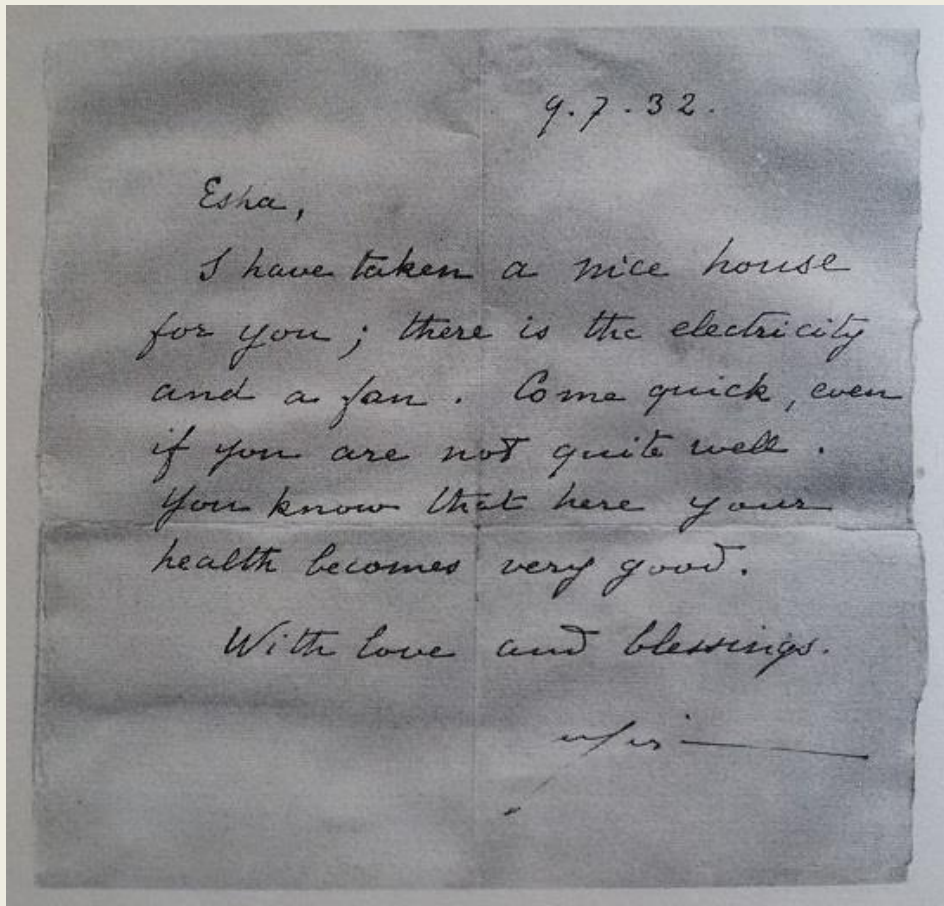 9.7.32.
Esha,
I have taken a nice house
for you; there is the electricity
and a fan. Come quick, even
if you are not quite well.
You know that here your
health becomes very good.
With love and blessings.